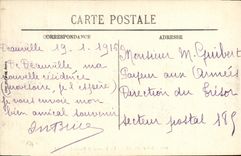 CARTE POSTALE
CORRESPONDANCE
ADRESSE
Deauville 13.1.1915
De Deauville ma
nouvelle résidence
(provisoire, je l'espère)
je vous envoie mon
bien amical souvenir
Monsieur M. Guibert
Payeur aux Armées
Direction du Trésor
secteur postal 185